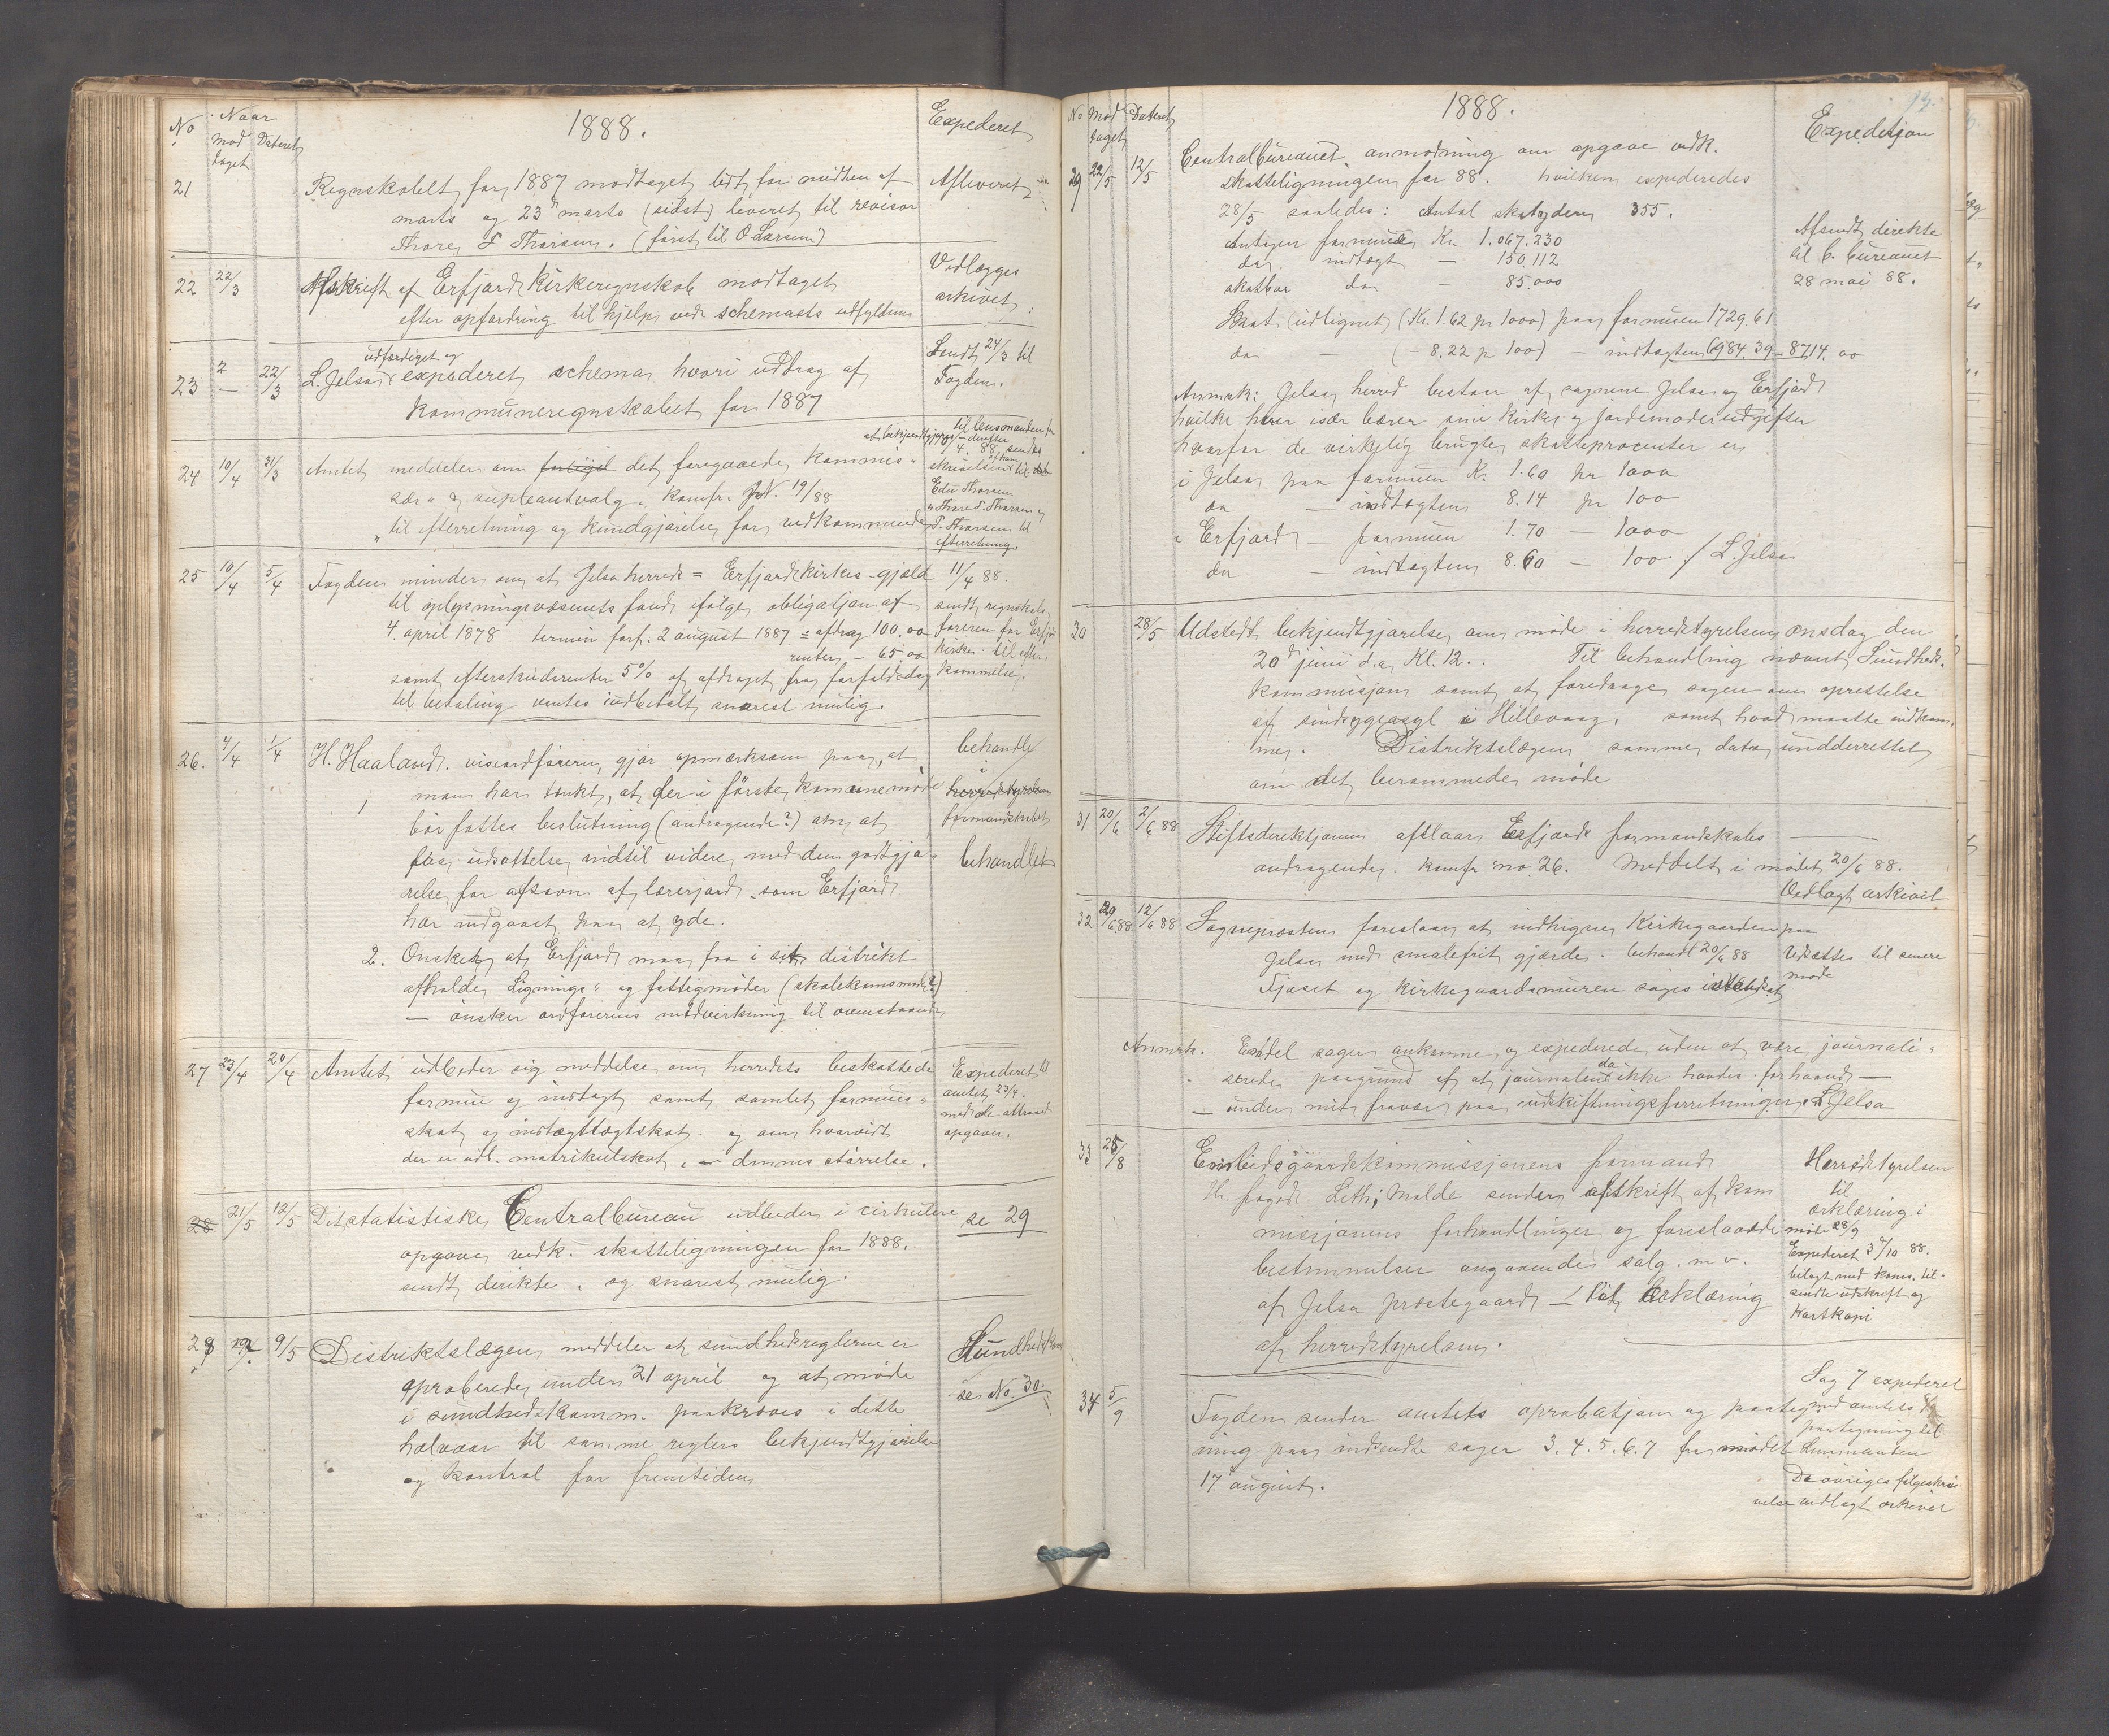 No
Naar
mod
taget
Dateret
1888.
Expederet
21 Regnskabet for 1887 modtaget lidt før midten af
marts og 23 marts (sidst) leveret til revisor
Thore T Thorsen. (først til O Larsen)
Afleveret
22 22/3 Afskrift af Erfjord Kirkeregnskab modtaget
efter opfordring til hjelp ved schemaets udfyldning
Vedlægges
arkivet.
23 2 — 22/3 L. Jelsa udfærdiget og expederet schema hvori uddrag af
kommuneregnskabet for 1887
Sendt 24/3 til
Fogden.
24 10/4 31/3 Amtet meddeler om det foregaaede kommis-
sær- & supleantvalg, konfr. N. 19/88
til efterretning og kundgjørelse for vedkommende
til lensmanden for
at bekjendtgjøres – derefter
skrivelsen til
Edv Thorsen
Thore T. Thorsen og
T. Thorsen til
efterretning.
25 10/4 5/4 Fogden minder om at Jelsa herreds = Erfjord kirkes - gjæld
til oplysningsvæsenets fond ifølge obligatjon af
4. april 1878 termin forf. 2 august 1887 = afdrag 100.00
renter – 65.00
samt efterskudsrenter 5% af afdraget fra forfaldsdag
til betaling ventes indbetalt snarest mulig.
11/4 88.
sendt regnskabs-
føreren for Erfjord
kirke - til efter-
kommelse.
26. 4/4 1/4 H. Haaland. viseordføreren, gjør opmærksom paa, at
1 man har tænkt, at der i første kommunemøde
bør fattes beslutning (andragende?) om at
faa udsættelse indtil videre med den godtgjø-
relse for afsavn af lærerjord som Erfjord
har indgaaet paa at yde.
2. Ønskelig at Erfjord maa faa i sit distrikt
afholde Lignings- og fattigmøder (skolekomsmøde?)
— ønsker ordførerens medvirkning til ovenstaaende
behandles
i
herredstyrelsen
formandskabet
behandlet
27 23/4 20/4 Amtet udbeder sig meddelse om herredets beskattede
formue og indtægt samt samlet formues-
skat og indtægtsskat. og om hvorvidt
der er udl. matrikulskat, dennes størrelse.
Expederet til
amtet 23/4.
med de attraaede
opgaver.
28 21/5 12/5 Det statistiske Centralbureau udbeder i cirkulære
opgave vedk. skatteligningen for 1888.
sendt direkte. og snarest mulig.
se 29
28 9/5 Distriktslægen meddeler at sundhedsreglerne er
aproberede under 21 april og at møde
i sundhedskomm. paakræves i dette
halvaar til samme reglers bekjendtgjørelse
og kontrol for fremtiden
Sundhedskom
se No. 30.
No Mod
taget
Dateret
1888.
Expeditjon
29 22/5 12/5 Centralbureauet anmodning om opgave vedk.
skatteligningen for 88. hvilken expederedes
28/5 saaledes: Antal skatydere 355.
Antagen formue Kr. 1.067.230
do indtægt — 150,112
skatbar do — 85.000
Skat (udlignet) (Kr. 1.62 pr 1000) paa formuen 1729.61
do — (– 8.22 pr 100) – indtægten 6984.39 = 8714.00
Afsendt direkte
til C. bureauet
28 mai 88.
Anmrk: Jelsa herred bestaar af sognene Jelsa og Erfjord
hvilke hver især bærer sine kirke og jordemoderudgifter
hvorfor de virkelig brugte skatteprocenter er
i Jelsa paa formuen Kr. 1.60 pr 1000
do — indtægten 8.14 pr 100
i Erfjord — formuen 1.70 — 1000
do — indtægten 8.60 — 100 / L. Jelsa
30 28/5 Udstedt bekjendtgjørelse om møde i herredstyrelsen onsdag den
20 juni d.a. Kl. 12. Til behandling nævnt Sundheds-
kommissjon samt at foredrage sagen om oprettelse
af sindsygeasyl i Hillevaag. samt hvad maatte indkom-
me. Distriktslægen samme dato underrettet
om det berammede møde
31 20/6 2/6 88 Stiftsdirektjonen afslaar Erfjord formandskabs
andragende. konfr no. 26. Meddelt i mødet 20/6 88.
Vedlagt arkivet
32 20/6 88 12/6 88 Sogneprøsten foreslaar at indhigne Kirkegaarden paa
Jelsa med smalefrit gjærde. behandl 20/6 88
Fjøset og kirkegaardsmuren søges istandsat
Udsættes til senere
møde
Anmrk. Endel sager ankomne og expederede uden at være journali-
serede paagrund af at journalen da ikke havdes forhaand —
— under mit fravær paa udskiftningsforretninger. L Jelsa
33 25/8 Embedsgaardskommissjonens formand
Hr. foged Lith, Molde sender afskrift af kom
missjonens forhandlinger og foreslaaede
bestemmelser angaaende salg. m v.
af Jelsa prestegaard — til erklæring
af herredstyrelsen.
Herredstyrelsen
til
erklæring i
møde 28/9
Expederet 3/10 88.
bilagt med kom. til-
sendte udskrift og
kartkopi
34 5/9 Fogden sender amtets aprobatjon og paateg
ning paa indsendte sager 3. 4. 5. 6. 7 fra mødet
17 august.
Sag 7 expederet
med amtets
paategning til
Lensmanden
De øvriges følgeskri-
velse vedlagt arkivet